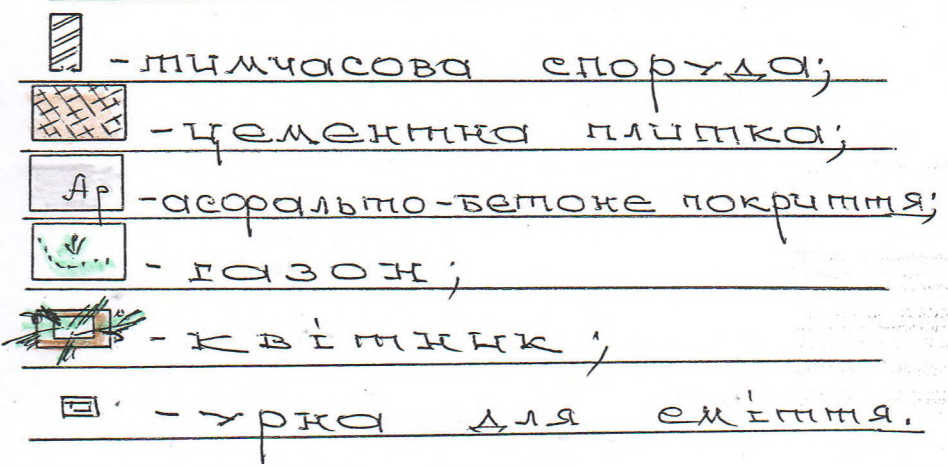 - тимчасова споруда;
- цементна плитка;
Ар - асфрально-бетоне покриття;
- газон;
- квітник;
- урна для сміття.